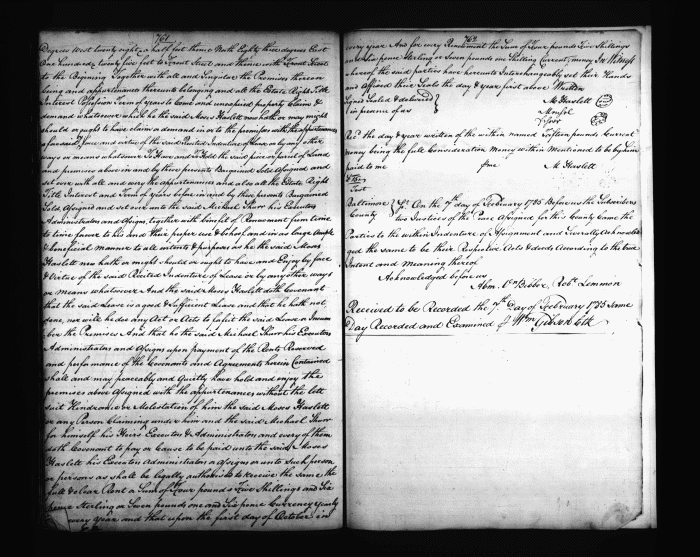 761
Degrees West twenty eight & a half feet thence North Eighty three degrees East
One hundred & twenty five feet to Front Street and thence with Front Street
to the Begining Together with all and Singular the Premises thereon
being and appurtenances thereunto belonging and all the Estate Right Title
Interest Possession Term of years to come and unexpired property Claim &
demand whatsoever which he the said Moses Haslett now hath or may might
should or ought to have claim or demand in or to the premises with the appurtenances
aforesaid, force and virtue of the said Recited Indenture of Lease or by any other
ways or means whatsoever To Have and to Hold the said piece or parcel of Land
and premises above in and by these presents Bargained Sold Assigned and
set over with all and every the appurtenances and also all the Estate Right
Title Interest and Term of years before in and by these presents Bargained
Sold, Assigned and set over unto the said Michael Shaw his Executors
Administrators and Assigns, together with benefit of Renewment from time
to time forever to his and their proper use & behoof, and in as large Ample
& beneficial manner to all intents & purposes as he the said Moses
Haslett now hath or might should or ought to have and Enjoy by force
& Virtue of the said Recited Indenture of Lease or by any other ways
or means whatsoever And the said Moses Haslett doth Covenant
that the said Lease is a good & Sufficient Lease and that he hath not,
done, nor will he do any Act or Acts to the said Lease or Incum
ber the Premises And that he the said Michael Shaw his Executors
Administrators and Assigns upon payment of the Rents Reserved
and performance of the Covenants and Agreements herein Contained
shall and may peaceably and Quietly have hold and enjoy the
premises above assigned with the appurtenances without the lett
suit hindrance or Molestation of him the said Moses Haslett
or any Person Claiming under him and the said Michael Shaw
for himself his Heirs Executors & Administrators and every of them
doth Covenant to pay or Cause to be paid unto the said Moses
Haslett his Executors Administrators or Assigns or unto such person
or persons as shall be legally authorised to receive the same the
full & clear Rent or Sum of Four pounds & Five Shillings and Six
pence Sterling or Seven pounds one and Six pence Currency Yearly
every year and that upon the first day of October in
762
every year And for every Renewment the Sum of Four pounds Five Shillings
and Six pence Sterling or Seven pounds one Shilling Current money In Witness
whereof the said parties have hereunto Interchangeably set their Hands
and affixed their Seals the day & year first above Written
Signed Sealed & delivered
in presence of us
M Haslett
Recd. the day & year written of the within named Fifteen pounds Current
money being the full Consideration Money within Mentioned to be by him
paid to me
M Haslett
Test
Baltimore
County
Sct. On the 7th day of February 1785 Before us the Subscribers
two Justices of the Peace Assigned for this County Came the
Parties to the within Indenture of Assignment and Severally Acknowled
ged the same to be their Respective Acts & deeds According to the true
Intent and Meaning thereof
Acknowledged before us
Robt. Lemmon
Received to be Recorded the 7th Day of February 1785 same
Day Recorded and Examined Wm Gibson Clk